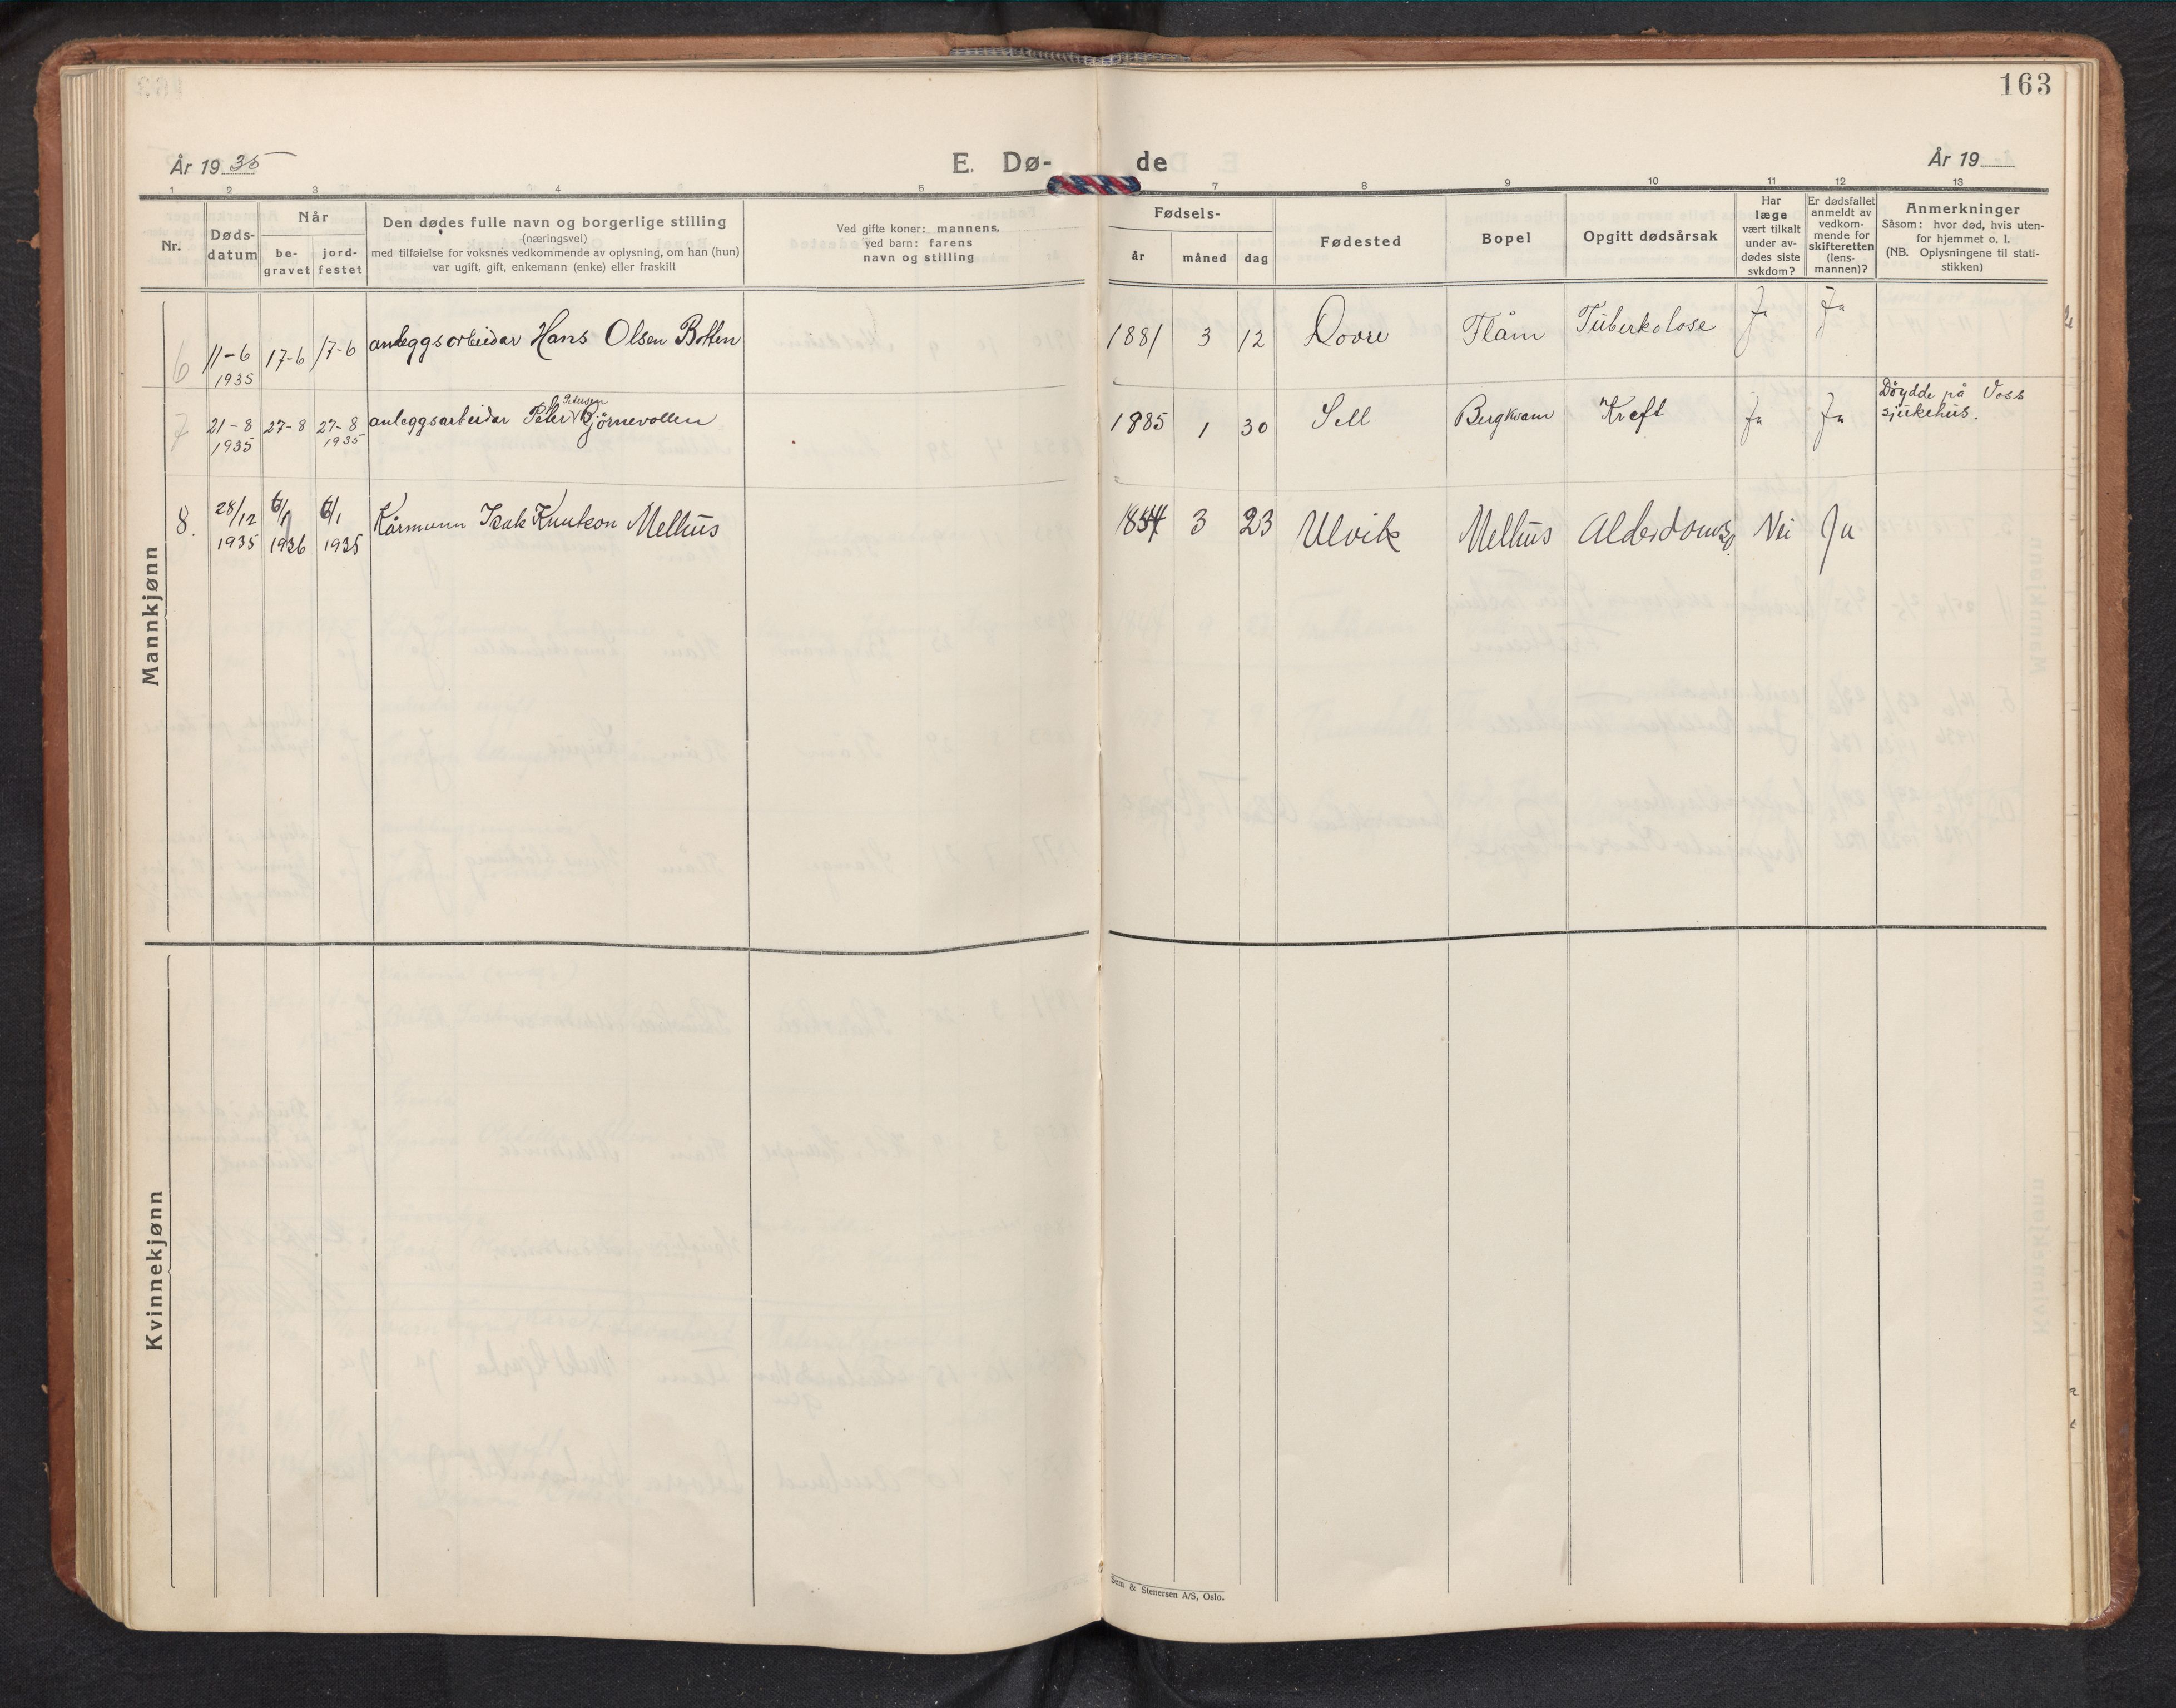 163
År 1935
E. Dø-de
År 19
1 2 3 4 5 7 8 9 10 11 12 13
Nr.
Døds-datum
Når
be-gravet
jord-festet
Den dødes fulle navn og borgerlige stilling
(næringsvei)
med tilføielse for voksnes vedkommende av oplysning, om han (hun)
var ugift, gift, enkemann (enke) eller fraskilt
Ved gifte koner: mannens,
ved barn: farens
navn og stilling
Fødsels-
år måned dag
Fødested
Bopel
Opgitt dødsårsak
Har
læge
vært tilkalt
under av-
dødes siste
sykdom?
Er dødsfallet
anmeldt av
vedkom-
mende for
skifteretten
(lens-
mannen)?
Anmerkninger
Såsom: hvor død, hvis uten-
for hjemmet o. l.
(NB. Oplysningene til stati-
stikken)
Mannkjønn
6 11-6 1935 17-6 17-6 anleggsarbeidar Hans Olsen Botten 1881 3 12 Dovre Flåm Tuberkolose Ja Ja
7 21-8 1935 27-8 27-8 1935 anleggsarbeidar Peter Petersen Bjørnevollen 1885 1 30 Sell Bergkvam Kreft Ja Ja Døydde på Voss
sjukehus.
8. 28/12 1935 6/1 1936 6/1 1935 Kårmann Isak Knutson Melhus 1854 3 23 Ulvik Melhus Alderdom Nei Ja
Kvinnekjønn
Sem & Stenersen A/S, Oslo.